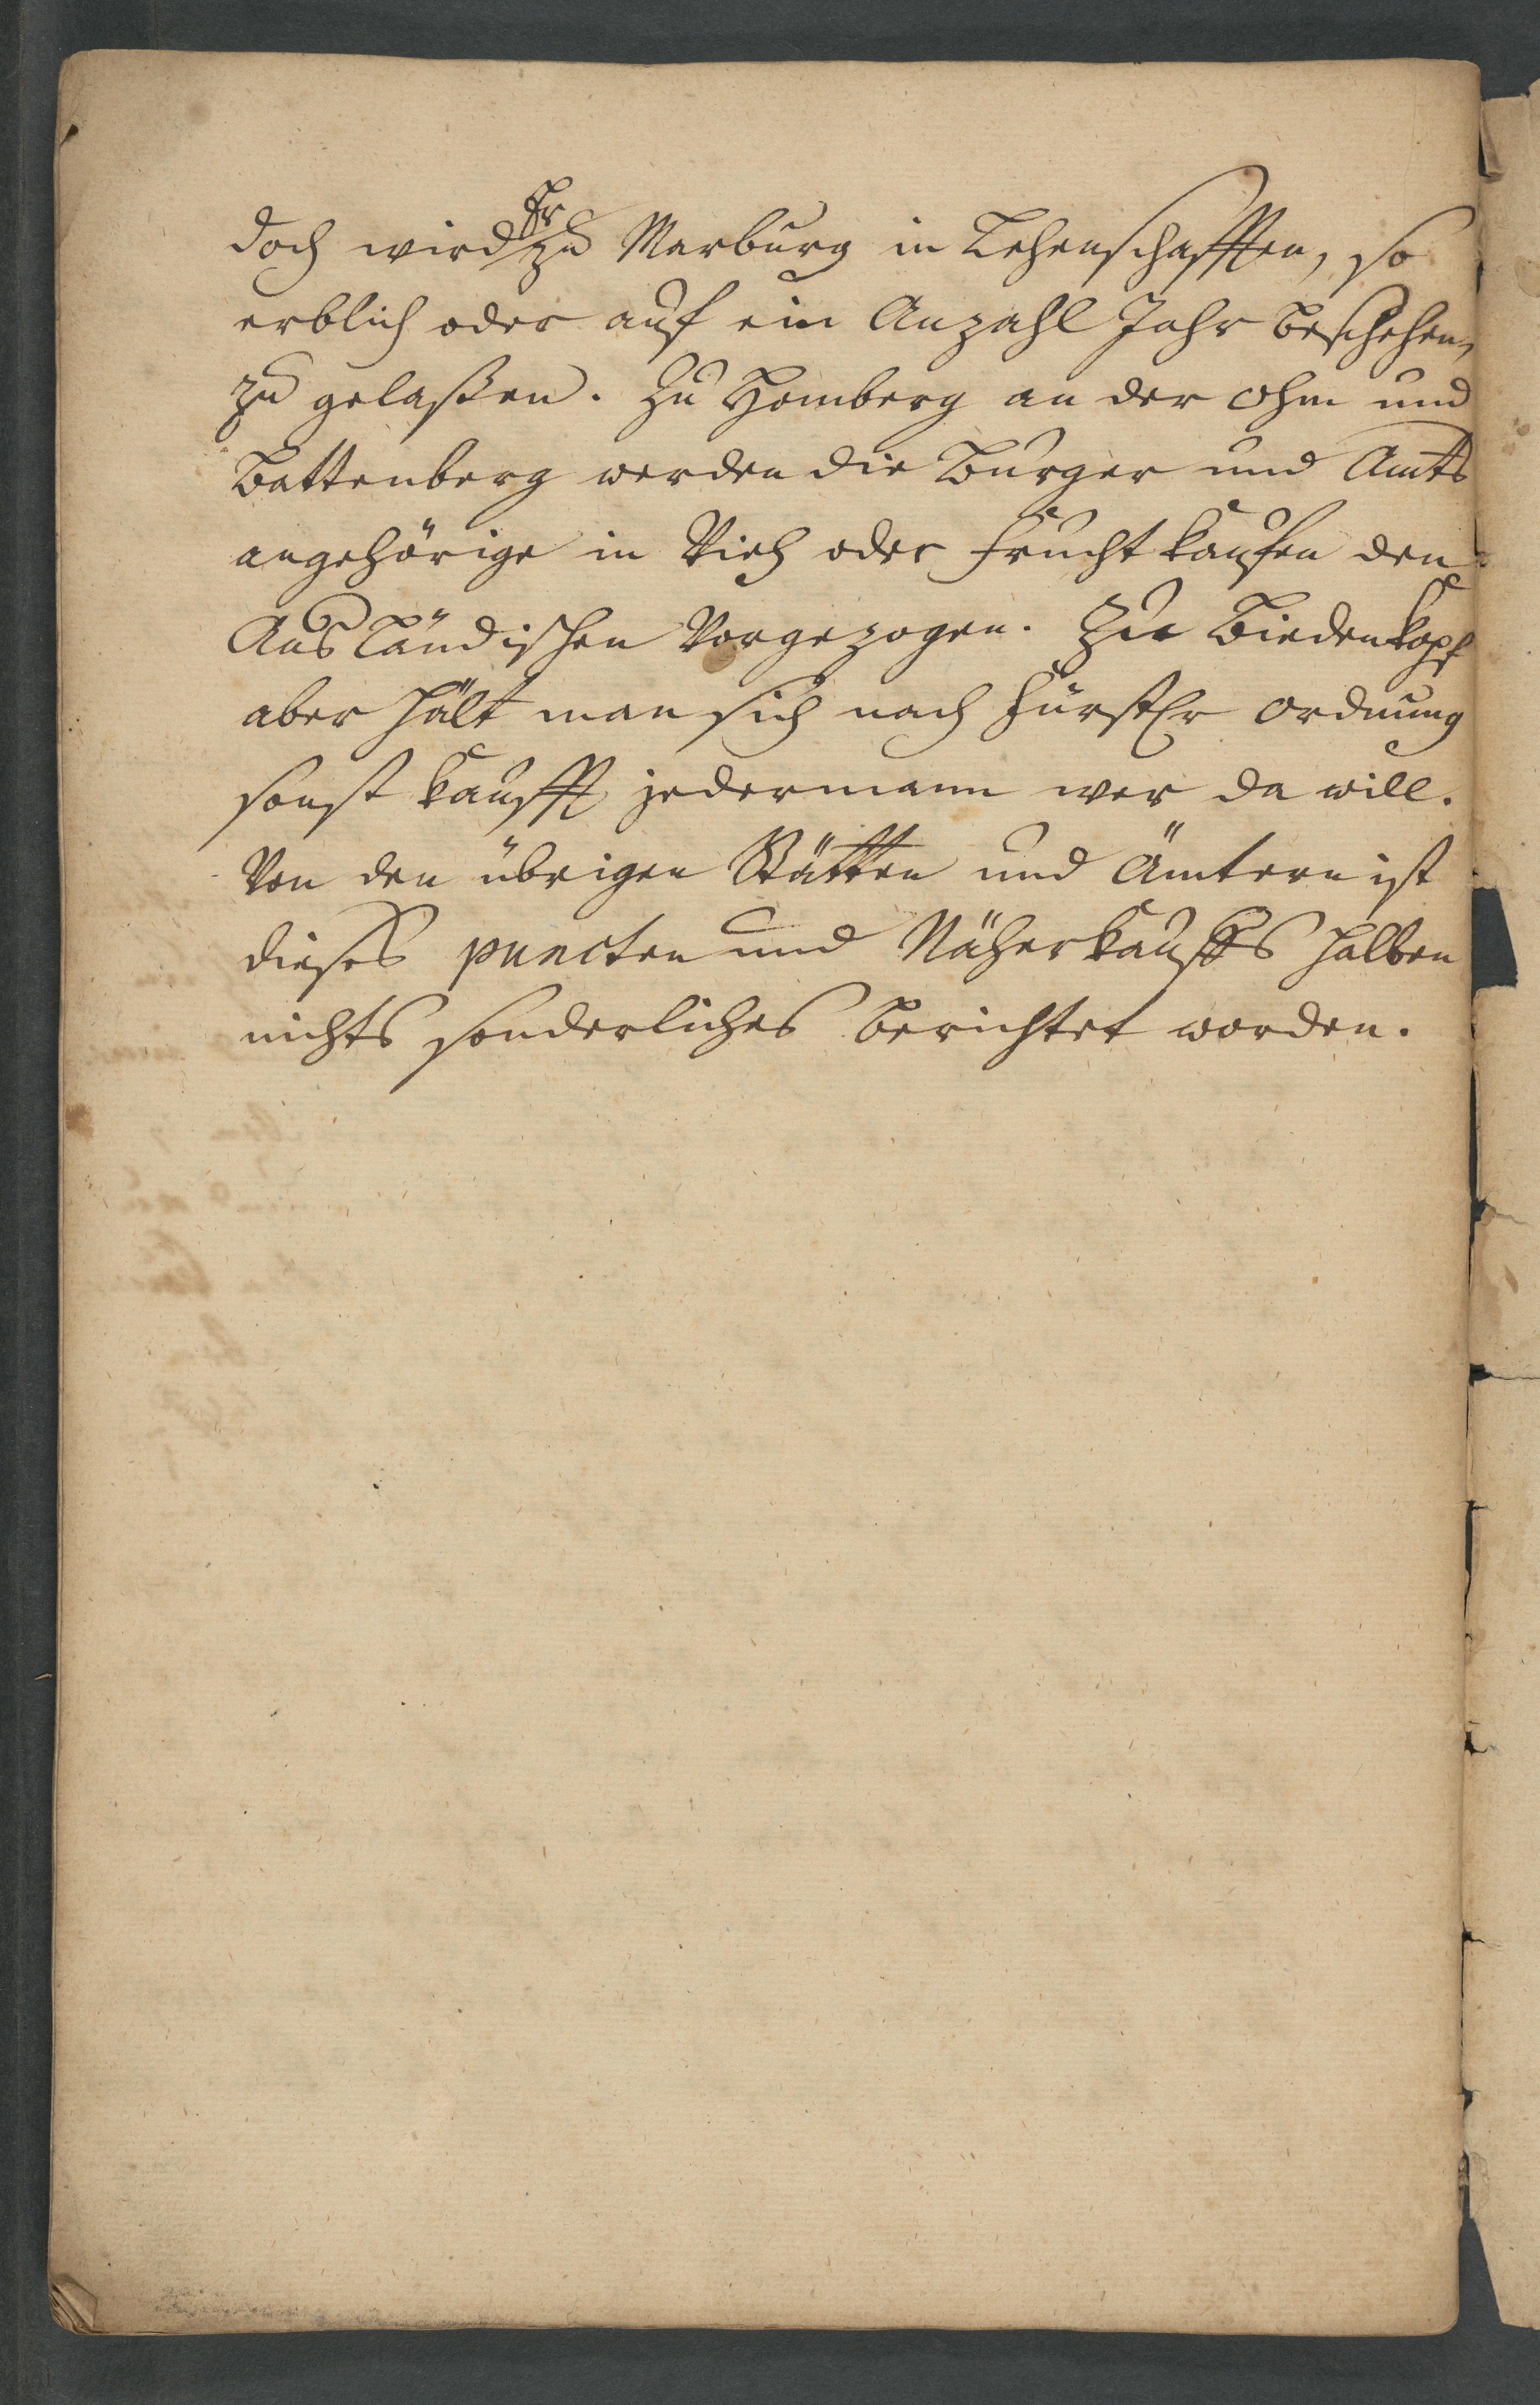 doch wird Er zu Marburg in Lehenschafften, so
erblich oder auf ein Anzahl Jahr beschehen,
zu gelaßen. Zu Homberg an der Ohm und
Battenberg werden die Burger und Amts
angehörige in Vieh oder Frucht kaufen den
Ausländischen Vorgezogen. Zu Biedenkopf
aber hält man sich nach Fürstlr Ordnung
sonst kaufft jedermann wer da will.
Von den übrigen Stätten und Ämtern ist
dieses puncten und Näherkauffs halben
nichts sonderliches berichtet worden.